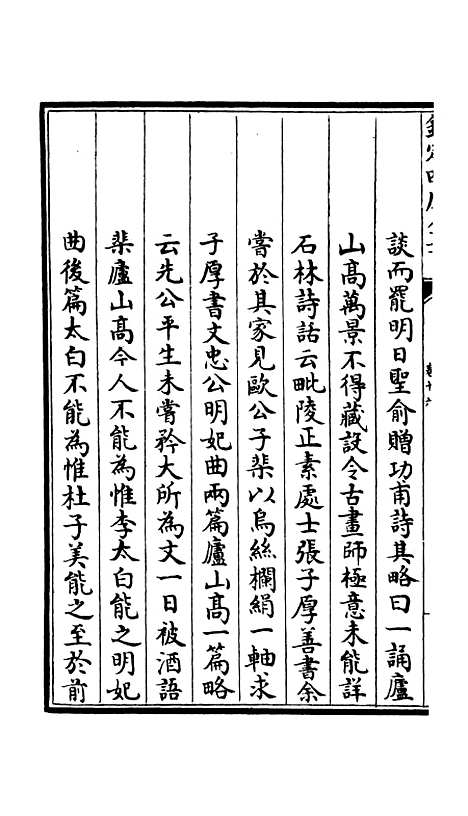 談而罷明日聖俞贈功甫詩其略曰一誦廬
山高萬景不得藏設令古畫師極意未能詳
石林詩話云毗陵正素處士張子厚善書余
嘗於其家見歐公子棐以烏絲欄絹一軸求
子厚書文忠公明妃曲兩篇廬山高一篇略
云先公平生未嘗矜大所為文一日被酒語
棐廬山高今人不能為惟李太白能之明妃
曲後篇太白不能為惟杜子美能之至於前